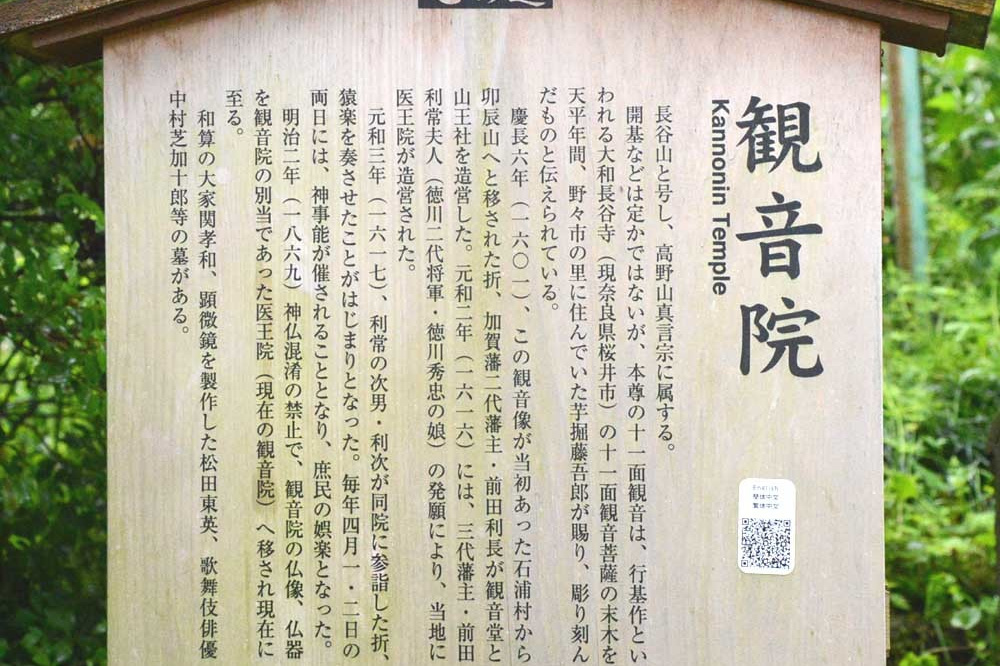 観音院
Kannonin Temple
長谷山と号し、高野山真言宗に属する。
開基などは定かではないが、本尊の十一面観音は、行基作とい
われる大和長谷寺（現奈良県桜井市）の十一面観音菩薩の末木を
天平年間、野々市の里に住んでいた芋掘藤吾郎が賜り、彫り刻ん
だものと伝えられている。
慶長六年（一六〇一）、この観音像が当初あった石浦村から
卯辰山へと移された折、加賀藩二代藩主・前田利長が観音堂と
山王社を造営した。元和二年（一六一六）には、三代藩主・前田
利常夫人（徳川二代将軍・徳川秀忠の娘）の発願により、当地に
医王院が造営された。
元和三年（一六一七）、利常の次男・利次が同院に参詣した折、
猿楽を奏させたことがはじまりとなった。毎年四月一・二日の
両日には、神事能が催されることとなり、庶民の娯楽となった。
明治二年（一八六九）神仏混淆の禁止で、観音院の仏像、仏器
を観音院の別当であった医王院（現在の観音院）へ移され現在に
至る。
和算の大家関孝和、顕微鏡を製作した松田東英、歌舞伎俳優
中村芝加十郎等の墓がある。
English
簡体中文
繁体中文